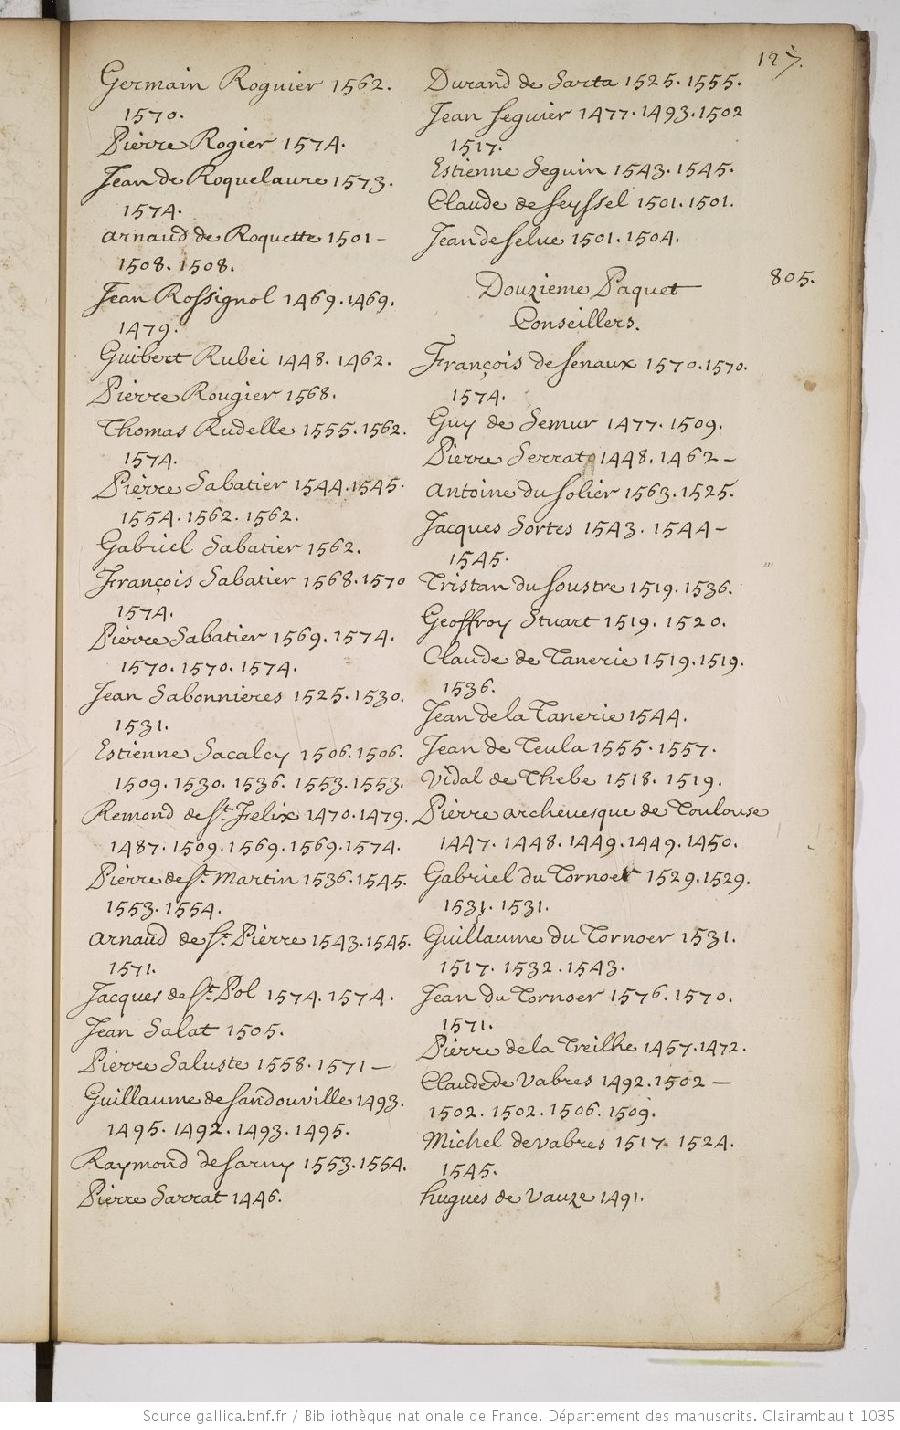 127.
Germain Roguier 1562.
1570.
Pierre Rogier 1574.
Jean de Roquelaure 1573.
1574.
Arnaud de Roquette 1501 –
1508. 1508.
Jean Rossignol 1469. 1469.
1479.
Guibert Rubei 1448. 1462.
Pierre Rougier 1568.
Thomas Rudelle 1555. 1562.
1574.
Pierre Sabatier 1544. 1545.
1554. 1562. 1562.
Gabriel Sabatier 1562.
François Sabatier 1568. 1570
1574.
Pierre Sabatier 1569. 1574.
1570. 1570. 1574.
Jean Sabonnieres 1525. 1530.
1531.
Estienne Sacaley 1506. 1506.
1509. 1530. 1536. 1553. 1553.
Remond de St. Felix 1470. 1479.
1487. 1509. 1569. 1569. 1574.
Pierre de St. Martin 1536. 1545.
1553. 1554.
Arnaud de St. Pierre 1543. 1545.
1571.
Jacques de St. Pol 1574. 1574.
Jean Salat 1505.
Pierre Saluste 1558. 1571 –
Guillaume de Sandouville 1493.
1495. 1492. 1493. 1495.
Raymond de Saruy 1553. 1554.
Pierre Sarrat 1446.
Durand de Sarta 1525. 1555.
Jean Seguier 1477. 1493. 1502
1517.
Estienne Seguin 1543. 1545.
Claude de Seyssel 1501. 1501.
Jean de Selue 1501. 1504.
Douzieme Paquet 805.
Conseillers.
François de Senaux 1570. 1570.
1574.
Guy de Semur 1477. 1509.
Pierre Serrat 1448. 1462 –
Antoine du Solier 1563. 1525.
Jacques Sortes 1543. 1544 –
1545.
Tristan du Soustre 1519. 1536.
Geoffroy Stuart 1519. 1520.
Claude de Tanerie 1519. 1519.
1536.
Jean de la Tanerie 1544.
Jean de Teula 1555. 1557.
Vidal de Thebe 1518. 1519.
Pierre archeuesque de Toulouse
1447. 1448. 1449. 1449. 1450.
Gabriel du Tornoer 1529. 1529.
1531. 1531.
Guillaume du Tornoer 1531.
1517. 1532. 1543.
Jean du Tornoer 1576. 1570.
1571.
Pierre de la Treilhe 1457. 1472.
Claude de Vabres 1492. 1502 –
1502. 1502. 1506. 1509.
Michel de Vabres 1517. 1524.
1545.
hugues de Vauze 1491.
Source gallica.bnf.fr / Bibliothèque nationale de France. Département des manuscrits. Clairambault 1035